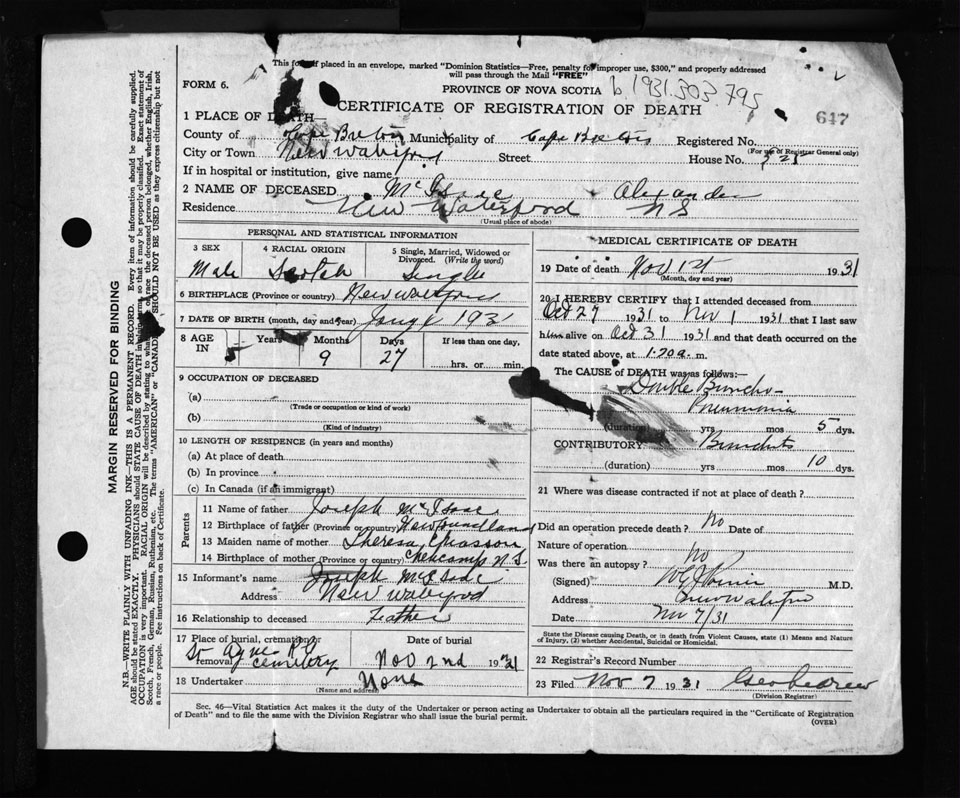 This form if placed in an envelope, marked "Dominion Statistics—Free, penalty for improper use, $300," and properly addressed
will pass through the Mail "FREE"
FORM 6.
PROVINCE OF NOVA SCOTIA b.1931.303.795
CERTIFICATE OF REGISTRATION OF DEATH 647
1 PLACE OF DEATH
County of Cape Breton Municipality of Cape Breton Registered No.
(For use of Registrar General only)
City or Town New Waterford Street House No. 325
If in hospital or institution, give name
2 NAME OF DECEASED McIsaac Alexander
Residence New Waterford N S
(Usual place of abode)
PERSONAL AND STATISTICAL INFORMATION
3 SEX 4 RACIAL ORIGIN 5 Single, Married, Widowed or
Divorced. (Write the word)
Male Scotch Single
6 BIRTHPLACE (Province or country) New Waterford
7 DATE OF BIRTH (month, day and year) 193
8 AGE IN Years Months Days If less than one day,
9 27 hrs. or min.
9 OCCUPATION OF DECEASED
(a)
(Trade or occupation or kind of work)
(b)
(Kind of industry)
10 LENGTH OF RESIDENCE (in years and months)
(a) At place of death
(b) In province
(c) In Canada (if an immigrant)
Parents
11 Name of father Joseph McIsaac
12 Birthplace of father (Province or country) Newfoundland
13 Maiden name of mother Theresa Chiasson
14 Birthplace of mother (Province or country) Chetcamp N.S.
15 Informant's name Joseph McIsaac
Address New Waterford
16 Relationship to deceased Father
17 Place of burial, cremation or removal Date of burial
St Agnes R C cemetery Nov 2nd 1931
18 Undertaker None
(Name and address)
MEDICAL CERTIFICATE OF DEATH
19 Date of death Nov 1st 1931
(Month, day and year)
20 I HEREBY CERTIFY that I attended deceased from
Oct 27 1931 to Nov 1 1931 that I last saw
him alive on Oct 31 1931 and that death occurred on the
date stated above, at 1.20 a. m.
The CAUSE of DEATH was as follows:
Double Broncho-
Pneumonia
(duration) yrs mos 5 dys.
CONTRIBUTORY Bronchitis
(duration) yrs mos 10 dys.
21 Where was disease contracted if not at place of death?
Did an operation precede death? No Date of
Nature of operation
Was there an autopsy? No
(Signed) M.D.
Address New Waterford
Date Nov 7/31
State the Disease causing Death, or in death from Violent Causes, state (1) Means and Nature
of Injury, (2) whether Accidental, Suicidal or Homicidal.
22 Registrar's Record Number
23 Filed Nov 7 1931
(Division Registrar)
Sec. 46—Vital Statistics Act makes it the duty of the Undertaker or person acting as Undertaker to obtain all the particulars required in the "Certificate of Registration
of Death" and to file the same with the Division Registrar who shall issue the burial permit. (OVER)
MARGIN RESERVED FOR BINDING
N.B.—WRITE PLAINLY WITH UNFADING INK—THIS IS A PERMANENT RECORD. Every item of information should be carefully supplied.
AGE should be stated EXACTLY. PHYSICIANS should state CAUSE OF DEATH in plain terms, so that it may be properly classified. Exact statement of
OCCUPATION is very important. RACIAL ORIGIN will be described by stating to what race the deceased person belonged, whether English, Irish,
Scotch, French, German, Russian, Ruthenian, etc. The terms "AMERICAN" or "CANADIAN" SHOULD NOT BE USED as they express citizenship but not
a race or people. See instructions on back of Certificate.